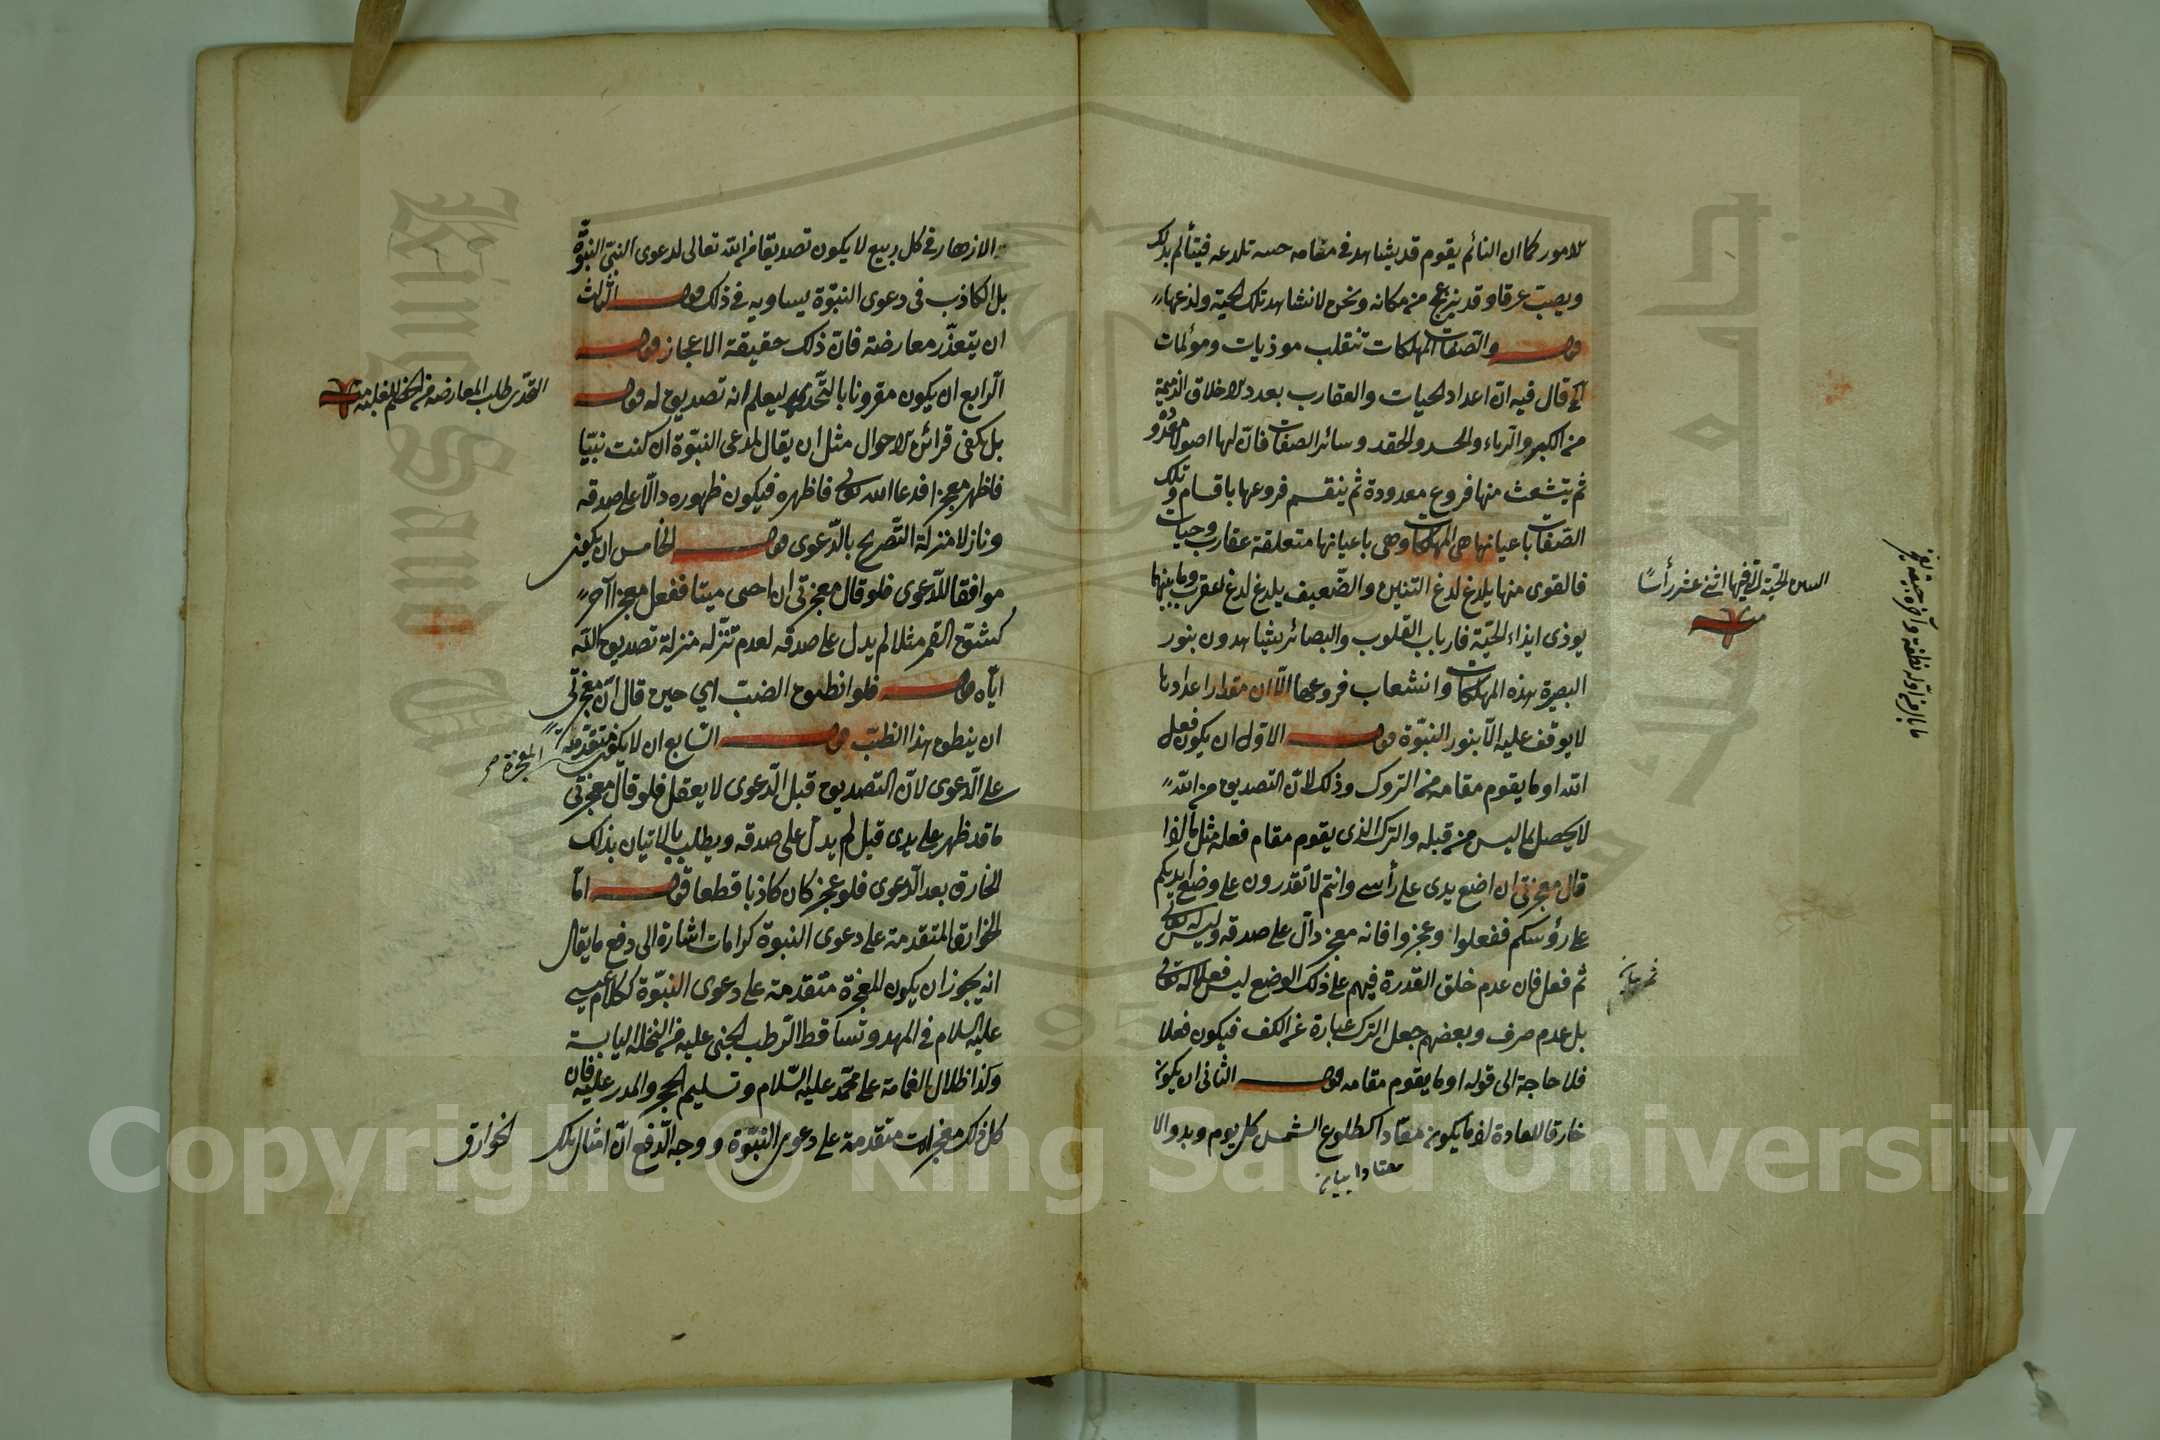 الامور كما ان النائم يقوم قد يشاهد في منامه حية تلدغه فيتألم بذلك
ويصب عرقا وقد ينزعج من مكانه ونحن لا نشاهد تلك الحية ولدغها
قوله والصفات المهلكات تنقلب موذيات ومؤلمات
قال فيه ان اعداد الحيات والعقارب بعدد الاخلاق الذميمة
من الكبر والرياء والحسد والحقد وسائر الصفات فان لها اصولا معدودة
ثم يتشعث منها فروع معدودة ثم ينقسم فروعها باقسام وتلك
الصفات باعيانها هى المهلكات وهى باعيانها متعلقة عقارب وحيات
فالقوى منها يلدغ لدغ التنين والضعيف يلدغ لدغ العقرب وما بينهما
يوذى ايذاء الحية فارباب القلوب والبصائر يشاهدون بنور
البصيرة بهذه المهلكات وانشعاب فروعها الا ان مقدار اعدادها
لا يوقف عليه الا بنور النبوة قوله الاول ان يكون فعل
الله او ما يقوم مقامه من التروك وذلك لان التصديق من الله
لا يحصل بما ليس من قبله والترك الذى يقوم مقام فعله مثل ما اذا
قال معجزتى ان اضع يدى على رأسى وانتم لا تقدرون على وضع ايديكم
على رؤسكم ففعلوا وعجزوا فانه معجز دال على صدقه وليس لله تعالى
ثم فعل فان عدم خلق القدرة فيهم على ذلك الوضع ليس فعلا لله تعالى
بل عدم صرف وبعضهم جعل الترك عبارة عن الكف فيكون فعلا
فلا حاجة الى قوله او ما يقوم مقامه قوله الثانى ان يكون
خارقا للعادة اذ ما يكون معتادا كطلوع الشمس كل يوم وبدو الا
معتادا بيان
التنين الحية التى فيها اثنى عشر رأسا
الازهار فى كل ربيع لا يكون تصديقا من الله تعالى لدعوى النبى النبوة
بل الكاذب فى دعوى النبوة يساويه فى ذلك قوله الثالث
ان يتعذر معارضته فان ذلك حقيقة الاعجاز قوله
الرابع ان يكون مقرونا بالتحدى ليعلم انه تصديق له قوله
بل يكفى قرائن الاحوال مثل ان يقال لمدعى النبوة ان كنت نبيا
فاظهر معجزا فدعا الله تعالى فاظهره فيكون ظهوره دالا على صدقه
ونازلا منزلة التصريح بالدعوى قوله الخامس ان يكون
موافقا للدعوى فلو قال معجزتى ان احيى ميتا ففعل معجزا آخر
كشق القمر مثلا لم يدل على صدقه لعدم تنزله منزلة تصديق الله
اياه قوله فلو انطق الضب اى حين قال ان معجزتى
ان ينطق هذا الضب قوله السابع ان لا يكون متقدمة
على الدعوى لان التصديق قبل الدعوى لا يعقل فلو قال معجزتى
ما قد ظهر على يدى قبل لم يدل على صدقه ويطلب بالاتيان بذلك
الخارق بعد الدعوى فلو عجز كان كاذبا قطعا قوله اما
الخوارق المتقدمة على دعوى النبوة كرامات اشارة الى دفع ما يقال
انه يجوز ان يكون المعجزة متقدمة على دعوى النبوة ككلام عيسى
عليه السلام فى المهد وتساقط الرطب الجنى عليه من النخلة اليابسة
وكذا ظلال الغمامة على محمد عليه السلام وتسليم الحجر والمدر عليه فان
كل ذلك معجزات متقدمة على دعوى النبوة ووجه الدفع ان امثال تلك
الخوارق
التحدى طلب المعارضة من الخصم للغلبة منه
المعجزة